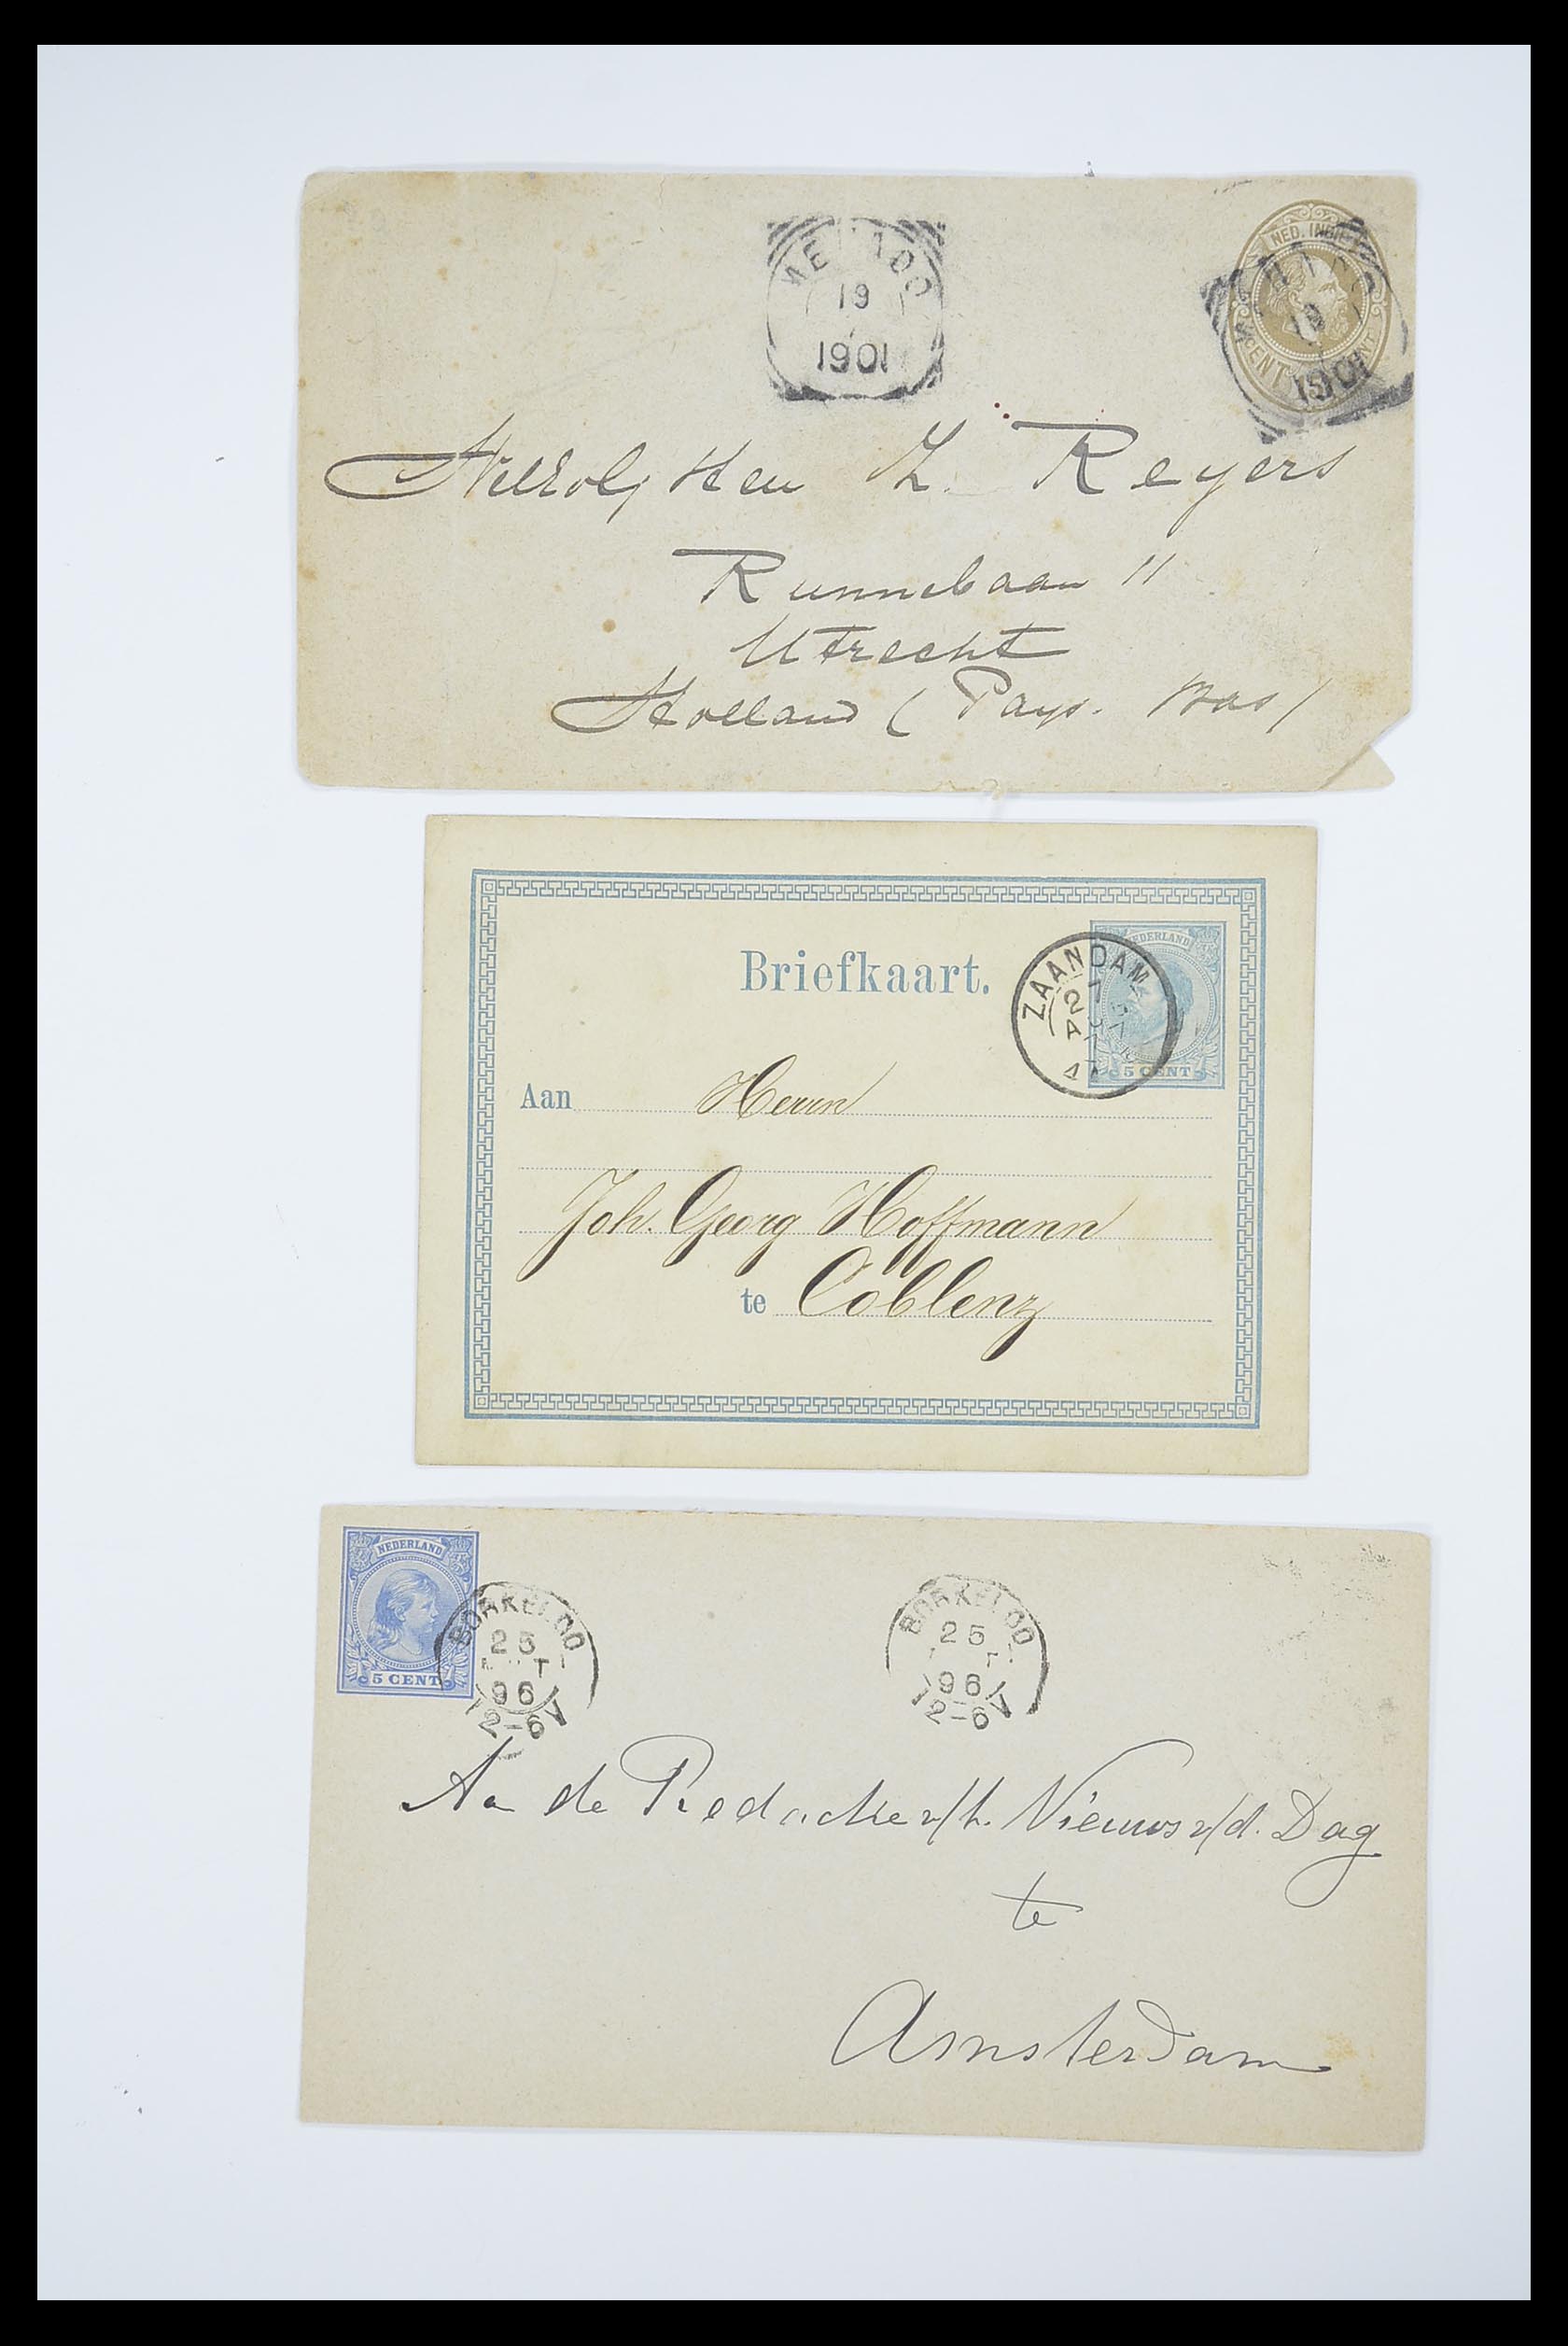 NED. INDIE
MENADO
19
1901
MENADO
19
1901
CENT
CENT
Z. Reyers
Runnebaan 11
Utrecht
Holland (Pays. Bas)
Briefkaart.
NEDERLAND
5 CENT
ZAANDAM
27
Aan Herrn
Joh. Georg Hoffmann
te Coblenz
NEDERLAND
5 CENT
BORKELOO
25
96
12-6V
BORKELOO
25
96
12-6V
Aan de Redactie v/h. Nieuws v/d. Dag
te
Amsterdam